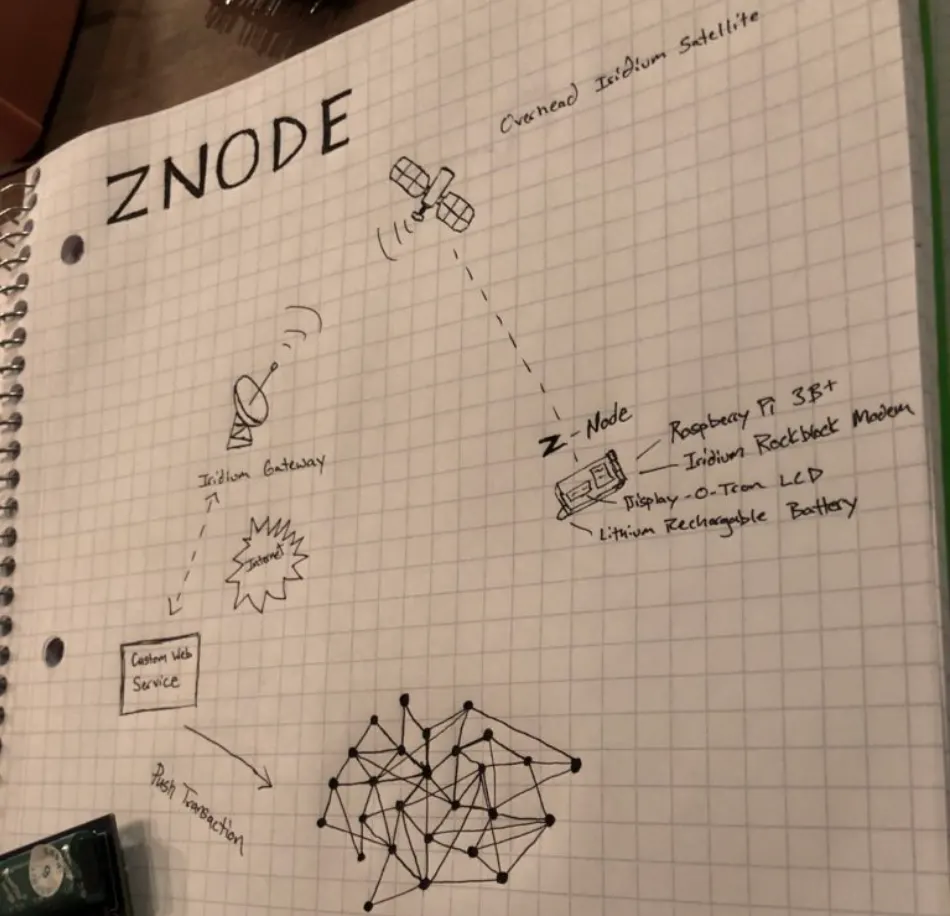 Overhead Iridium Satellite
ZNODE
Z-Node
Raspberry Pi 3B+
Iridium Rockblock Modem
Display-O-Tron LCD
Lithium Rechargable Battery
Iridium Gateway
Internet
Custom Web
Service
Push Transaction